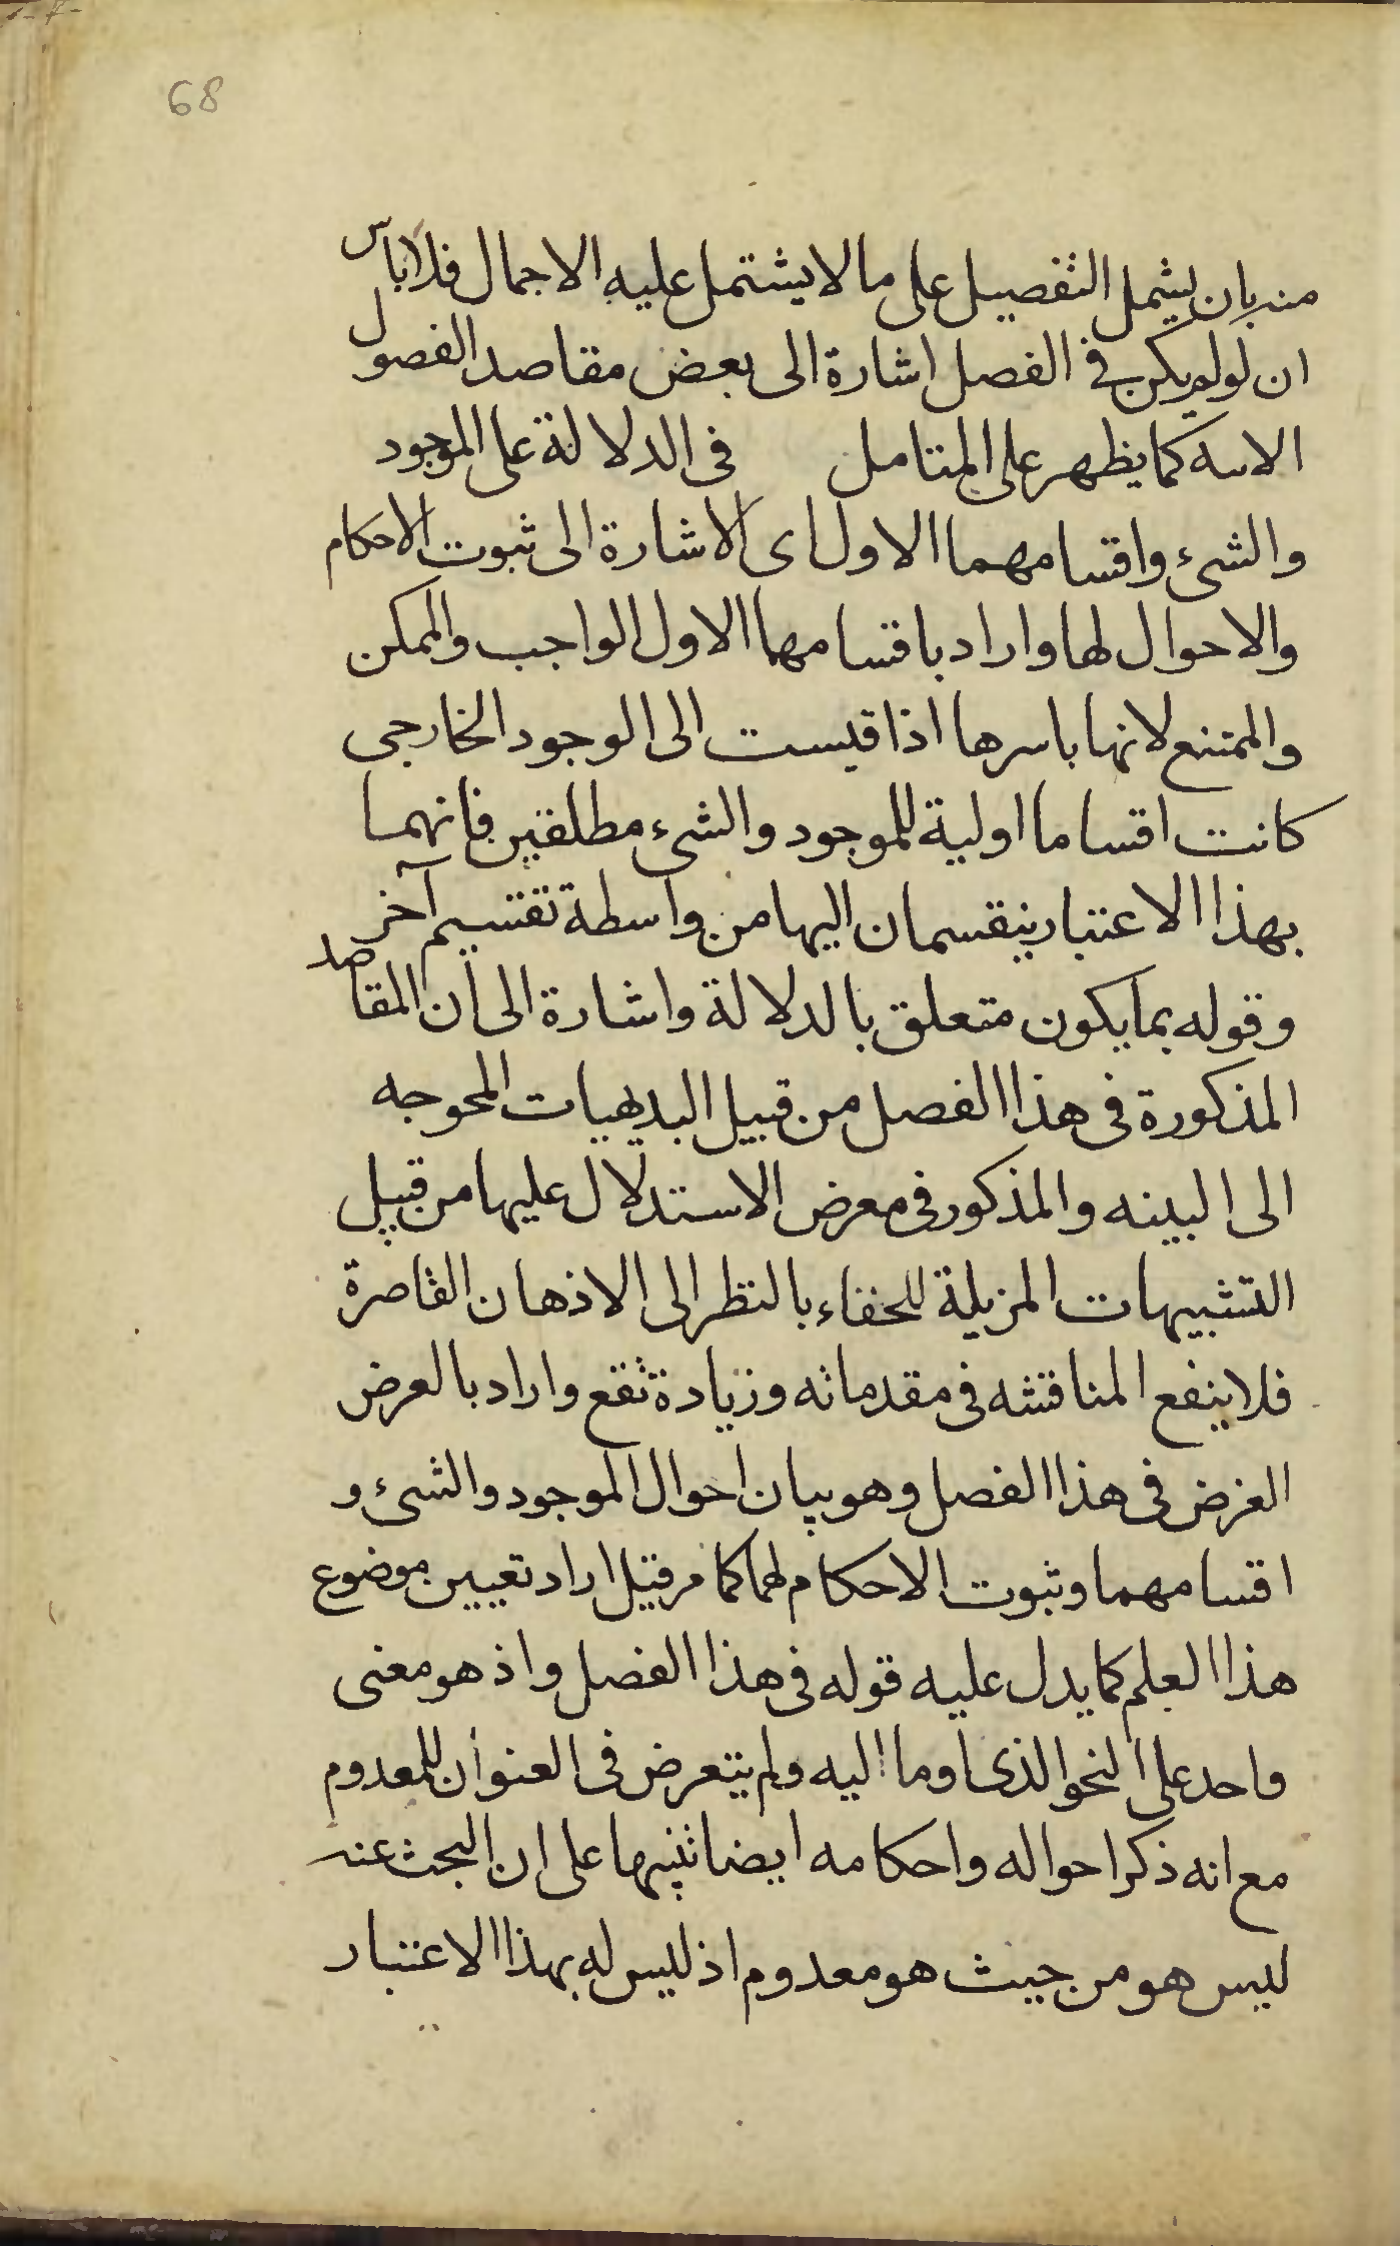 68
منه بان يشمل التفصيل على ما لا يشتمل عليه الاجمال فلا باس
ان لو لم يكن في الفصل اشارة الى بعض مقاصد الفصول
الاىىه كما يظهر على المتامل في الدلالة على الموجود
والشىء واقسامهما الاول اى الاشارة الى ثبوت الاحكام
والاحوال لها واراد باقسامهما الاول الواجب والممكن
والممتنع لانها باسرها اذا قيست الى الوجود الخارجى
كانت اقساما اولية للموجود والشىء مطلقين فانهما
بهذا الاعتبار ينقسمان اليها من واسطة تقسيم آخر
وقوله بما يكون متعلق بالدلالة واشارة الى ان المقاصد
المذكورة في هذا الفصل من قبيل البديهيات المحوجه
الى البينه والمذكور في معرض الاستدلال عليها من قبيل
التنبيهات المزيلة للخفاء بالنظر الى الاذهان القاصرة
فلا ينفع المناقشه في مقدماته وزيادة تقع واراد بالعرض
الغرض في هذا الفصل وهو بيان احوال الموجود والشىء و
اقسامهما وثبوت الاحكام لهما كما مر قيل اراد تعيين موضوع
هذا العلم كما يدل عليه قوله في هذا الفصل واذ هو معنى
واحد على النحو الذى اوما اليه ولم يتعرض في العنوان للمعدوم
مع انه ذكر احواله واحكامه ايضا تنبيها على ان البحث عنه
ليس هو من حيث هو معدوم اذ ليس له بهذا الاعتبار